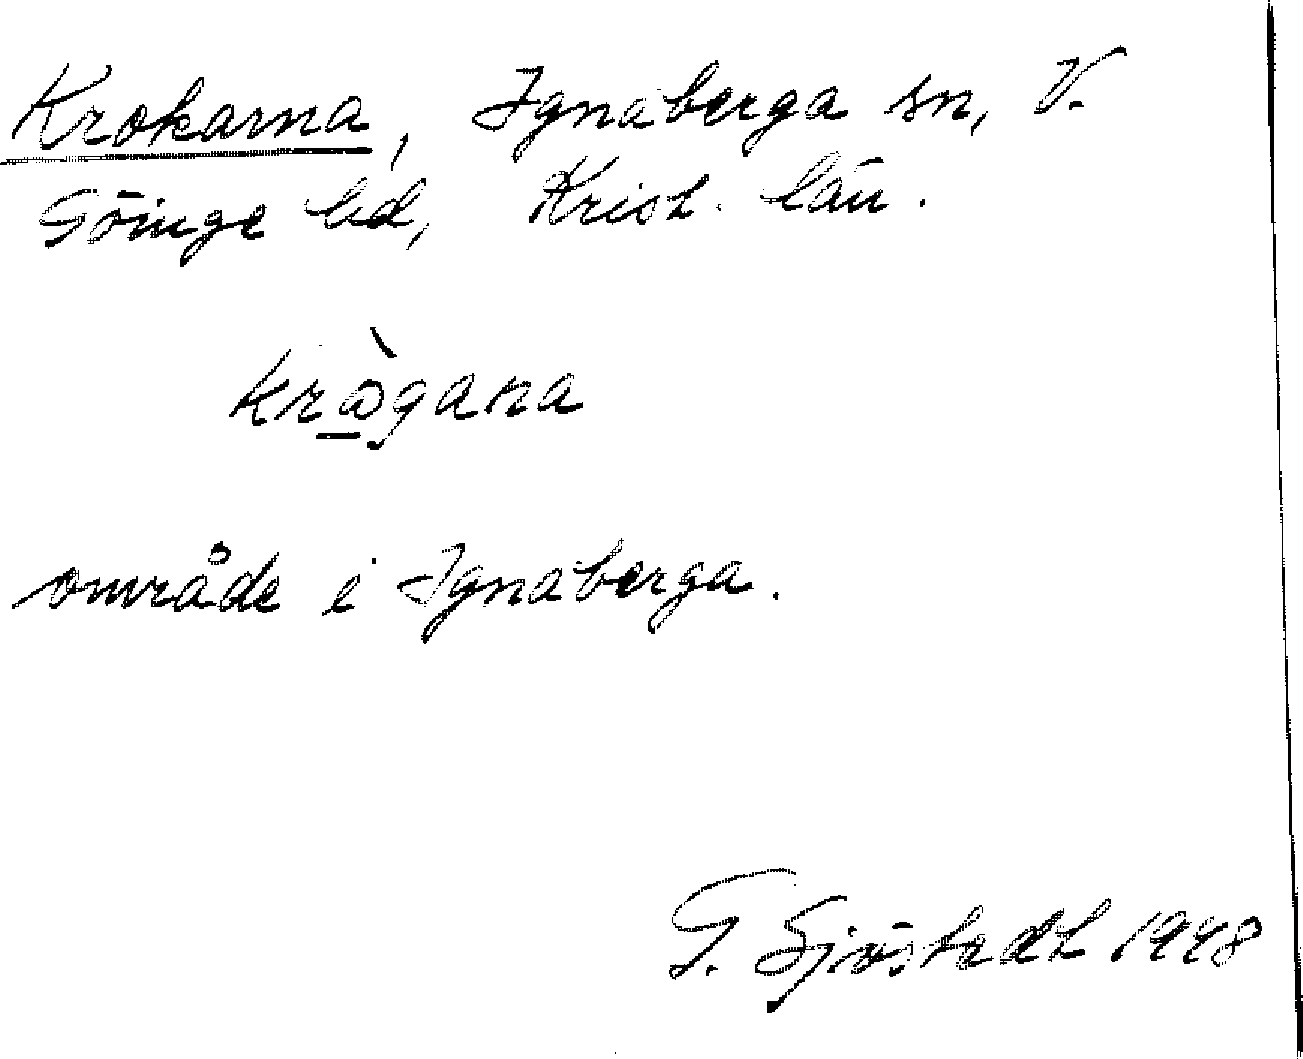 Krokarna, Ignaberga sn, V.
Göinge hd, Krist. län.
krɷ̱̀gana
område i Ignaberga.
G. Sjöstedt 1948